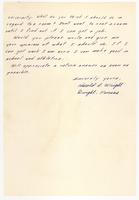 university. What do you think I should do in
regard to a room I don't want to rent a room
until I find out if I can get a job.
Would you please write and give me
your opinion of what I should do. If I
can get work I am sure I can make good in
school and athletics.
Will appreciate a return answer as soon as
possible.
Sincerely yours,
Harold D. Wright
Dwight, Kansas